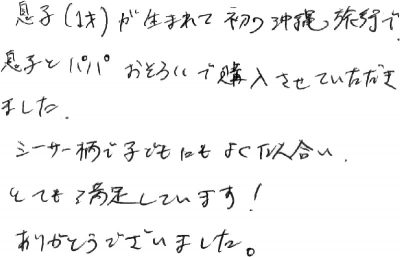 息子(1才)が生まれて初の沖縄旅行で、
息子とパパおそろいで購入させていただき
ました。
シーサー柄で子どもにもよく似合い、
とても満足しています!
ありがとうございました。